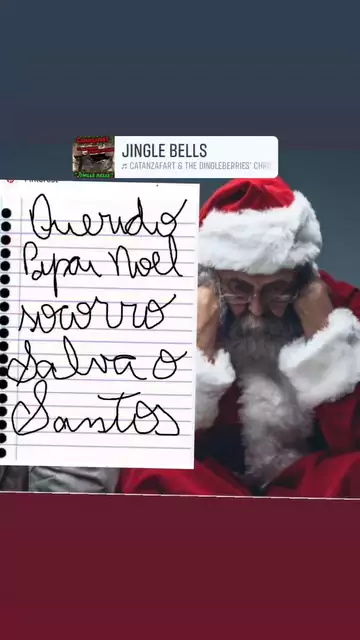 JINGLE BELLS
♬ CATANZAFART & THE DINGLEBERRIES' CHRI
"JINGLE BELLS"
Pinterest
Querido
Papai Noel
socorro
Salva o
Santos